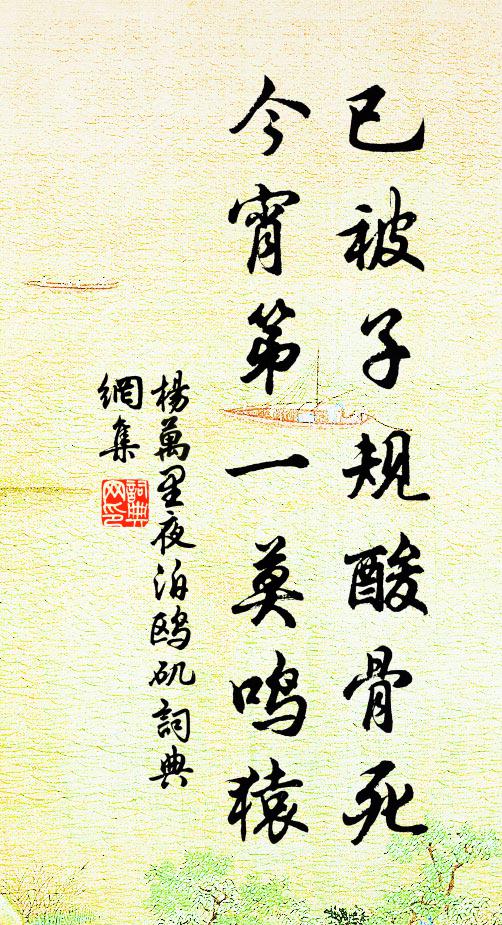 已被子规酸骨死
今宵第一莫鸣猿
楊萬里夜泊鸥矶詞典
網集
詞典
网印